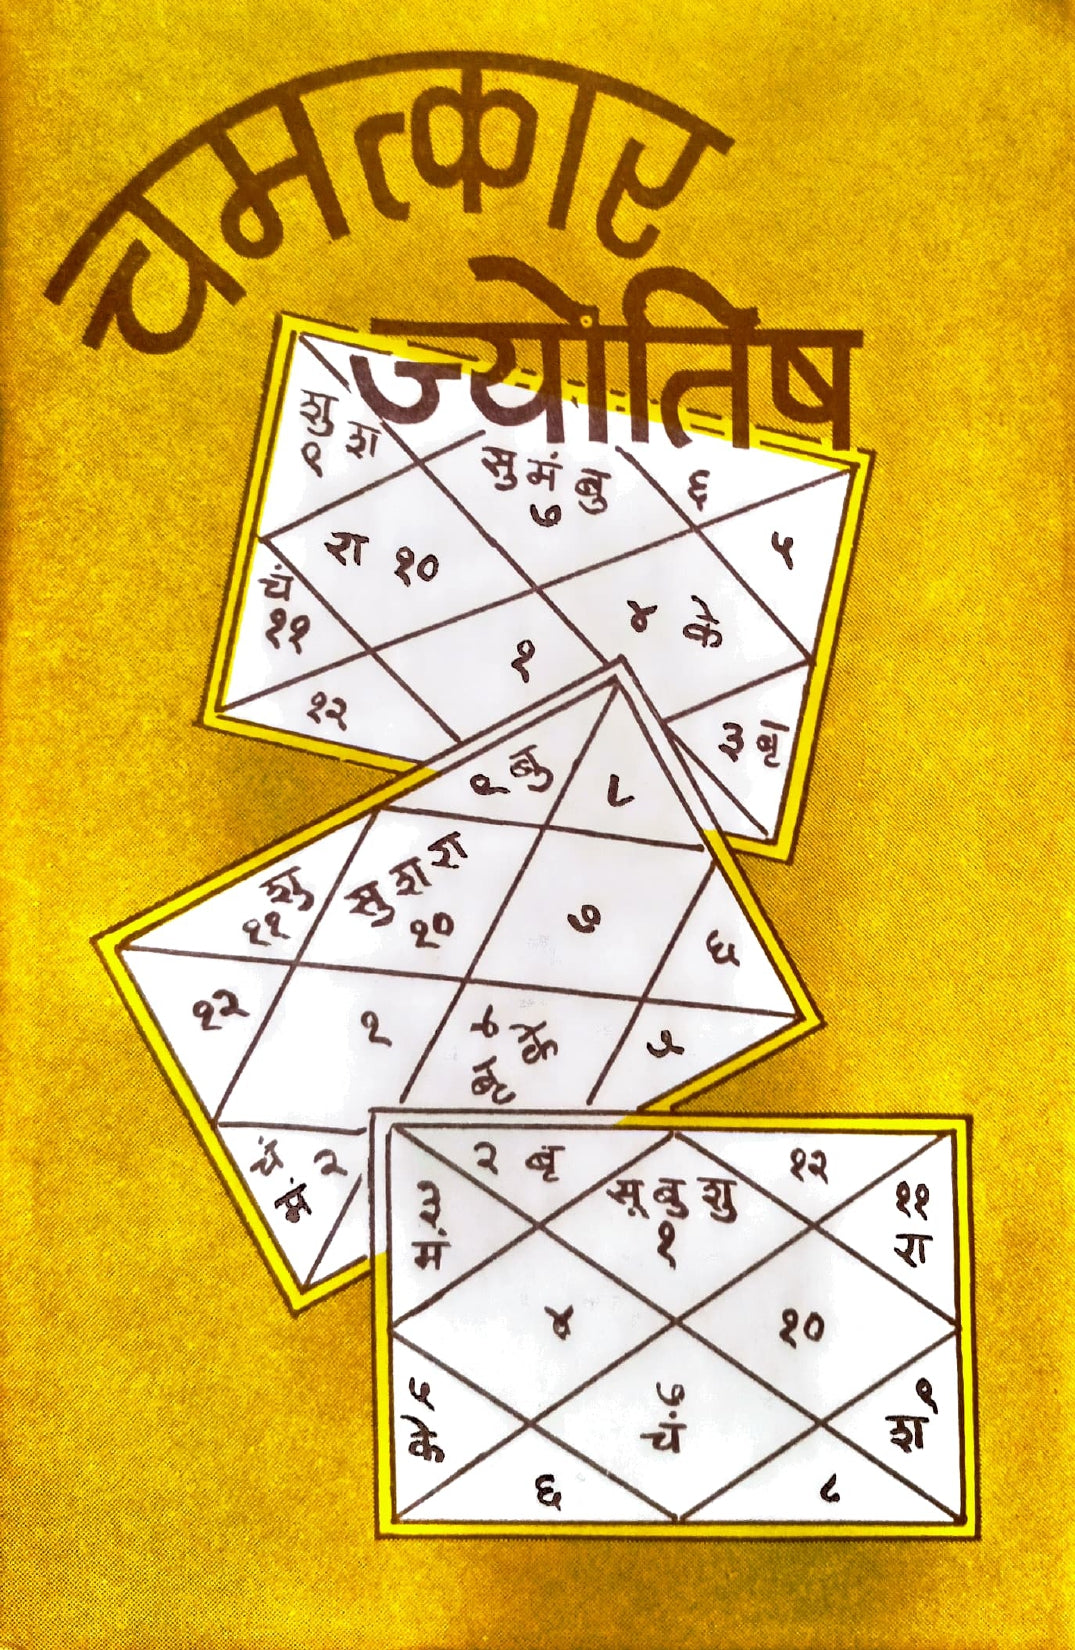 चमत्कार
ज्योतिष
शु श
९
सु मं बु
७
६
५
रा १०
४ के
चं
११
१
१२
३ बृ
९ बु
८
सु श रा
१०
शु
११
७
६
१२
१
४ के
बृ
५
चं २
मं
२ बृ
१२
३
मं
सू बु शु
१
११
रा
४
१०
५
के
७
चं
९
श
६
८